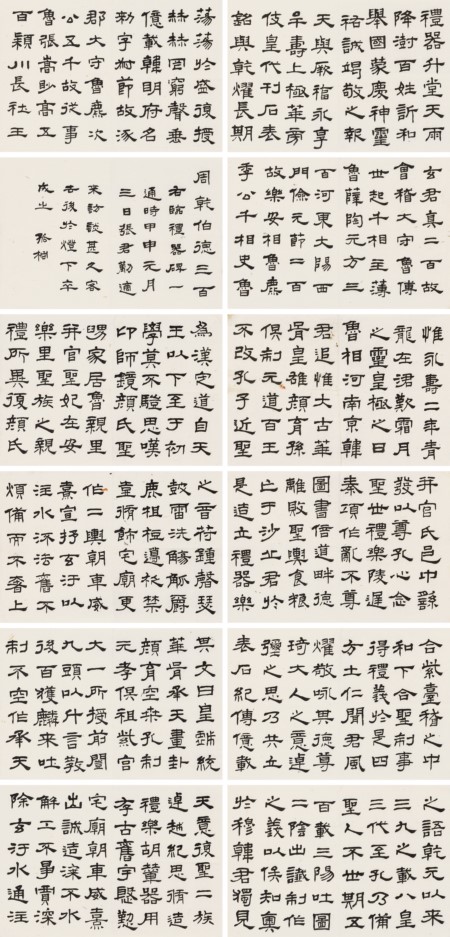 禮器升堂天雨
降澍百姓訢和
舉國蒙慶神靈
祐誠竭敬之報
天與厥福永享
牟壽上極華旁
伎皇代刊石表
銘與乾燿長期
蕩蕩於盛復授
赫赫罔窮聲垂
億載韓明府名
勑字叔節故涿
郡大守魯麃次
公五千故從事
魯張嵩眇高五
百穎川長社王
玄君真二百故
會稽大守魯傅
世起千相主薄
魯薛陶元方三
百河東大陽西
門儉元節二百
故樂安相魯麃
季公千相史魯
周乾伯德三百
右臨禮器碑一
通時甲申元月
三日張君勤適
來訪談甚久客
去後於燈下卒
成之
惟永壽二年青
龍在涒歎霜月
之靈皇極之日
魯相河南京韓
君追惟大古華
胥皇雄顏育孫
俱制元道百王
不改孔子近聖
為漢定道自天
王以下至于初
學莫不驗思嘆
卬師鏡顏氏聖
舅家居魯親里
并官聖妃在安
樂里聖族之親
禮所異復顏氏
并官氏邑中繇
發以尊孔心念
聖世禮樂陵遲
秦項作亂不尊
圖書倍道畔德
離敗聖輿食糧
亡于沙丘君於
是造立禮器樂
之音符鍾磬瑟
鼓雷洗觴觚爵
鹿柤梪籩柉禁
壺脩飾宅廟更
作二輿朝車威
熹宣抒玄汙以
注水沛法舊不
煩備而不奢上
合紫臺稽之中
和下合聖制事
得禮儀於是四
方士仁聞君風
燿敬咏其德尊
琦大人之意逴
彌之思乃共立
表石紀傳億載
其文曰皇戲統
華胥承天畫卦
顏育空桑孔制
元孝俱祖紫宮
大一所授前闓
九頭以什言教
後百獲麟來吐
制不空作承天
之語乾元以來
三九之載八皇
三代至孔乃備
聖人不世期五
百載三陽吐圖
二陰出讖制作
之義以俟知奧
於穆韓君獨見
天意復聖二族
逴越紀思脩造
禮樂胡輦器用
存古舊宇慇懃
宅廟朝車威熹
出誠造深不水
解工不爭賈深
除玄汙水通注